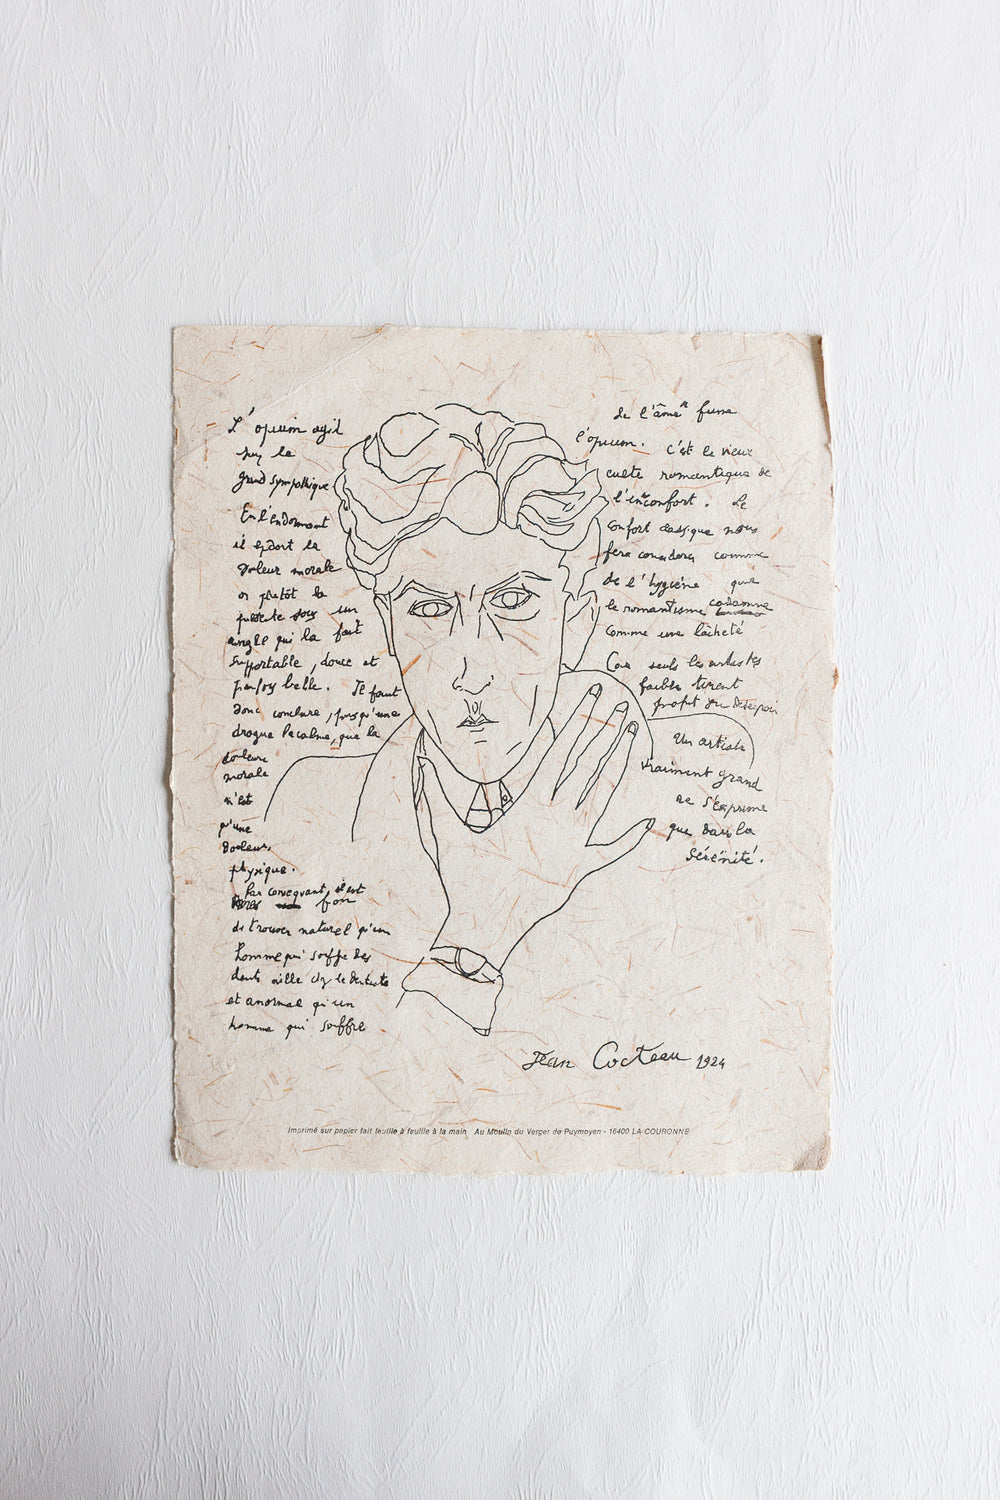 L'opium agit
sur le
grand sympathique
En l'endormant
il endort la
douleur morale
or plutôt la
présente sous un
angle qui la fait
supportable, douce et
parfois belle. Il faut
donc conclure, puisqu'une
drogue la calme, que la
douleur
morale
n'est
qu'une
douleur
physique.
Par conséquent, il est
fou
de trouver naturel qu'un
homme qui souffre des
dents aille chez le dentiste
et anormal qu'un
homme qui souffre
de l'âme fume
l'opium. C'est le vieux
culte romantique de
l'inconfort. Le
confort classique nous
fera considérer comme
de l'hygiène que
le romantisme condamne
comme une lâcheté
Car seuls les artistes
faibles tirent
profit du désespoir
Un artiste
vraiment grand
ne s'exprime
que dans la
Sérénité.
Jean Cocteau 1924
Imprimé sur papier fait feuille à feuille à la main Au Moulin du Verger de Puymoyen - 16400 LA COURONNE